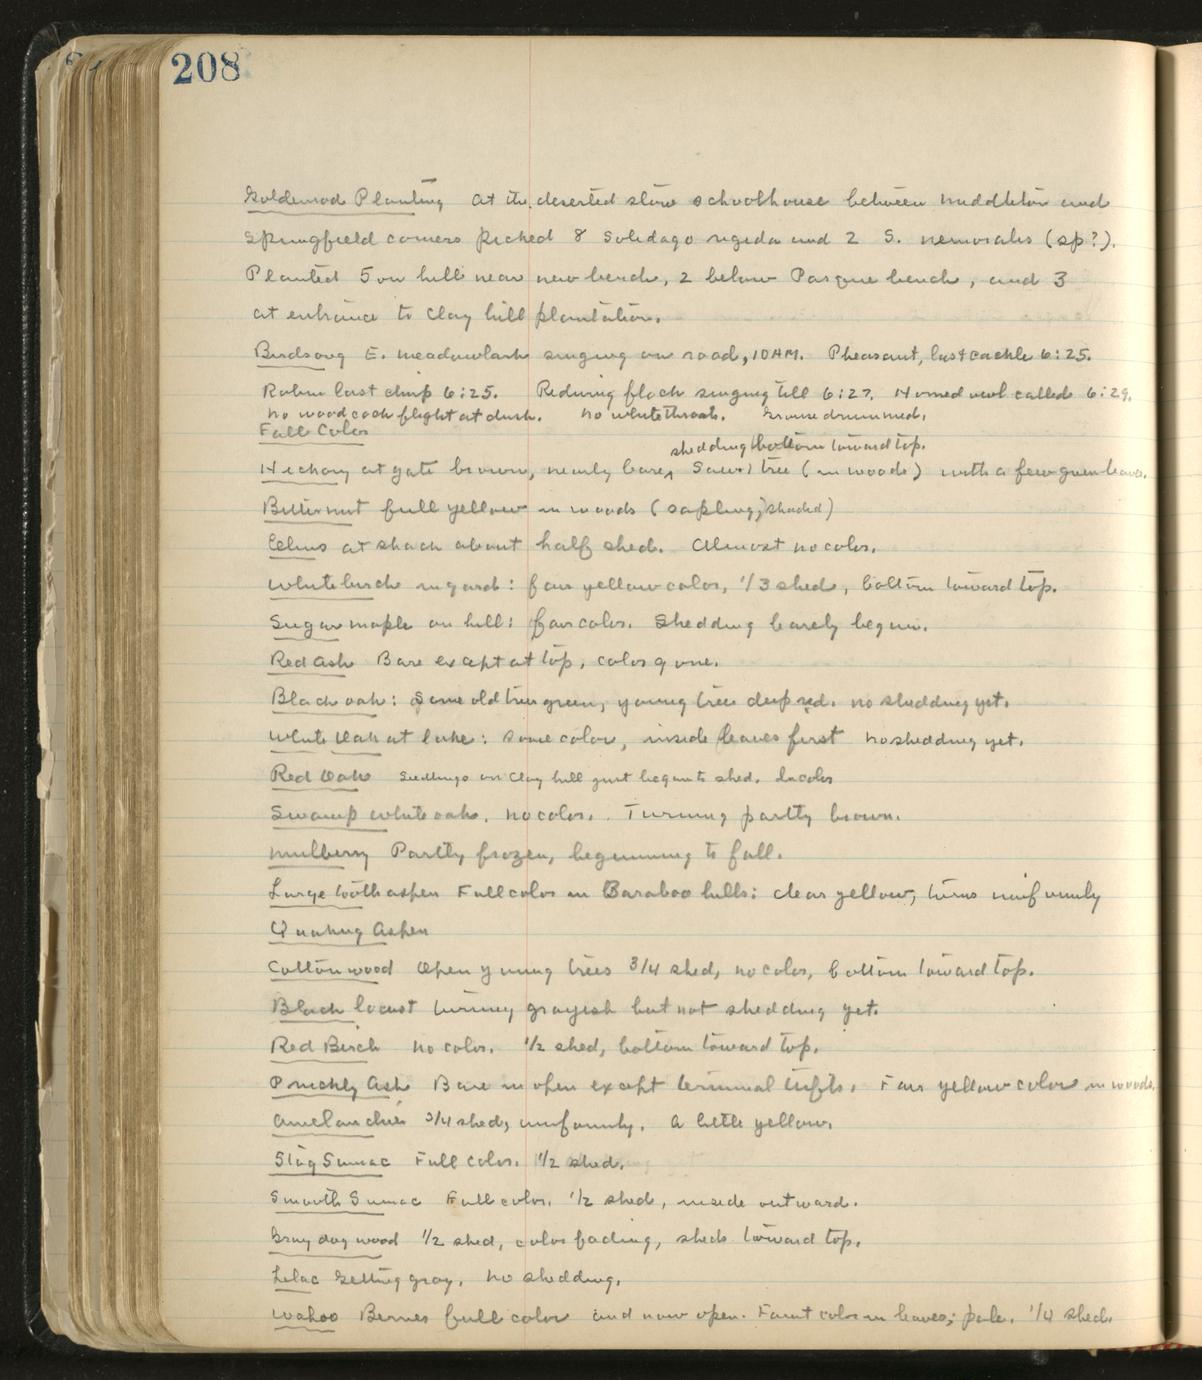 208
Goldenrod Planting At the deserted stone schoolhouse between Middleton and
Springfield corners picked 8 Solidago rigida and 2 S. nemoralis (sp?).
Planted 5 on hill near new bench, 2 below Pasque bench, and 3
at entrance to Clay hill plantation.
Birdsong E. meadowlark singing on road, 10 AM. Pheasant, last cackle 6:25.
Robin last chirp 6:25. Redwing flock singing till 6:27. Horned owl called 6:29.
No woodcock flight at dusk. No whitethroat. Grouse drummed.
Fall Color
shedding bottom toward top.
Hickory at gate brown, nearly bare, Sawed tree (in woods) with a few green leaves.
Bitternut full yellow in woods (sapling; shaded)
Elms at shack about half shed. Almost no color.
White birch in yard: fair yellow color, 1/3 shed, bottom toward top.
Sugar maple on hill: fair color. Shedding barely begun.
Red Ash Bare except at top, color gone.
Black oak: Some old trees green, young trees deep red. no shedding yet.
White Oak at lake: some color, inside leaves first No shedding yet.
Red Oak Seedlings on Clay hill just began to shed. In color
Swamp white oak. No color. Turning partly brown.
Mulberry Partly frozen, beginning to fall.
Large tooth aspen Full color in Baraboo hills: clear yellow; turns uniformly
Quaking Aspen
Cottonwood Open young trees 3/4 shed, no color, bottom toward top.
Black locust turning grayish but not shedding yet.
Red Birch No color. 1/2 shed, bottom toward top.
Prickly Ash Bare in open except terminal tufts. Fair yellow color in woods.
Amelanchier 3/4 shed, uniformly. A little yellow.
Stag Sumac Full color. 1/2 shed.
Smooth Sumac Full color. 1/2 shed, inside outward.
Gray dogwood 1/2 shed, color fading, sheds toward top.
Lilac Getting gray. No shedding.
Wahoo Berries full color and now open. Faint color in leaves; pale. 1/4 shed.